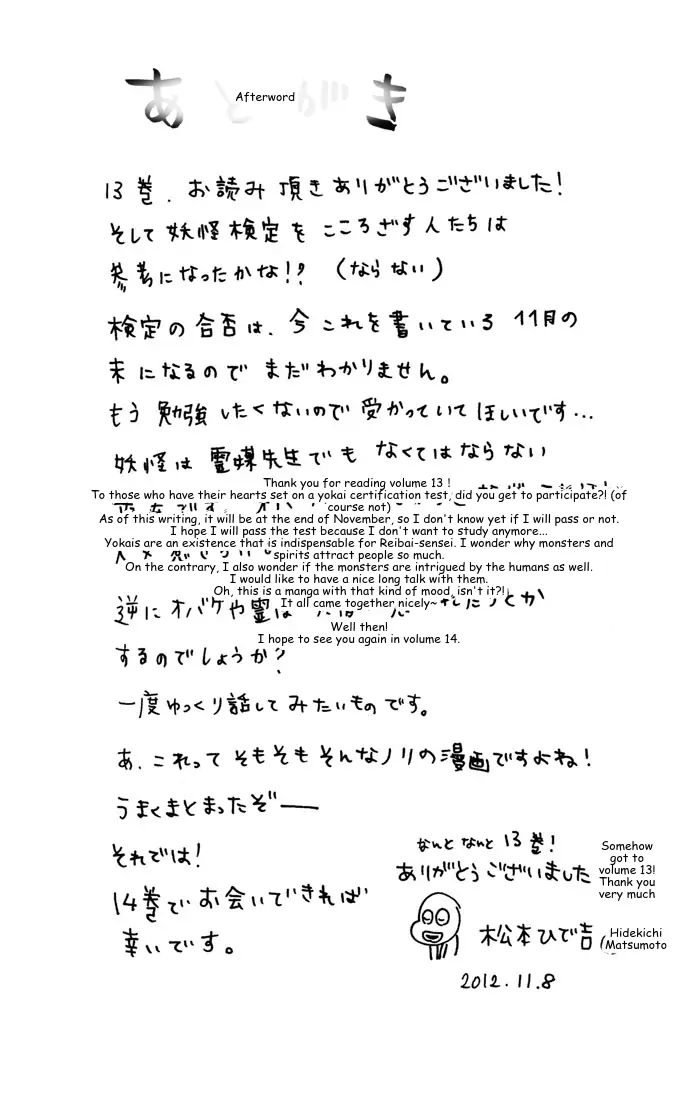 あとがき
Afterword
13巻、お読み頂きありがとうございました!
そして妖怪検定をこころざす人たちは
参考になったかな!?(ならない)
検定の合否は、今これを書いている11月の
末になるのでまだわかりません。
もう勉強したくないので受かっていてほしいです…
妖怪は霊媒先生でもなくてはならない
Thank you for reading volume 13 !
To those who have their hearts set on a yokai certification test, did you get to participate?! (of
course not)
As of this writing, it will be at the end of November, so I don't know yet if I will pass or not.
I hope I will pass the test because I don't want to study anymore...
Yokais are an existence that is indispensable for Reibai-sensei. I wonder why monsters and
spirits attract people so much.
On the contrary, I also wonder if the monsters are intrigued by the humans as well.
I would like to have a nice long talk with them.
Oh, this is a manga with that kind of mood, isn't it?!
It all came together nicely~
Well then!
I hope to see you again in volume 14.
逆にオバケや霊は
するのでしょうか?
一度ゆっくり話してみたいものです。
あ、これってそもそもそんなノリの漫画ですよね!
うまくまとまったぞー
それでは!
14巻でお会いできれば
幸いです。
なんとなんと13巻!
ありがとうございました
Somehow
got to
volume 13!
Thank you
very much
松本ひで吉
Hidekichi
(Matsumoto
2012.11.8